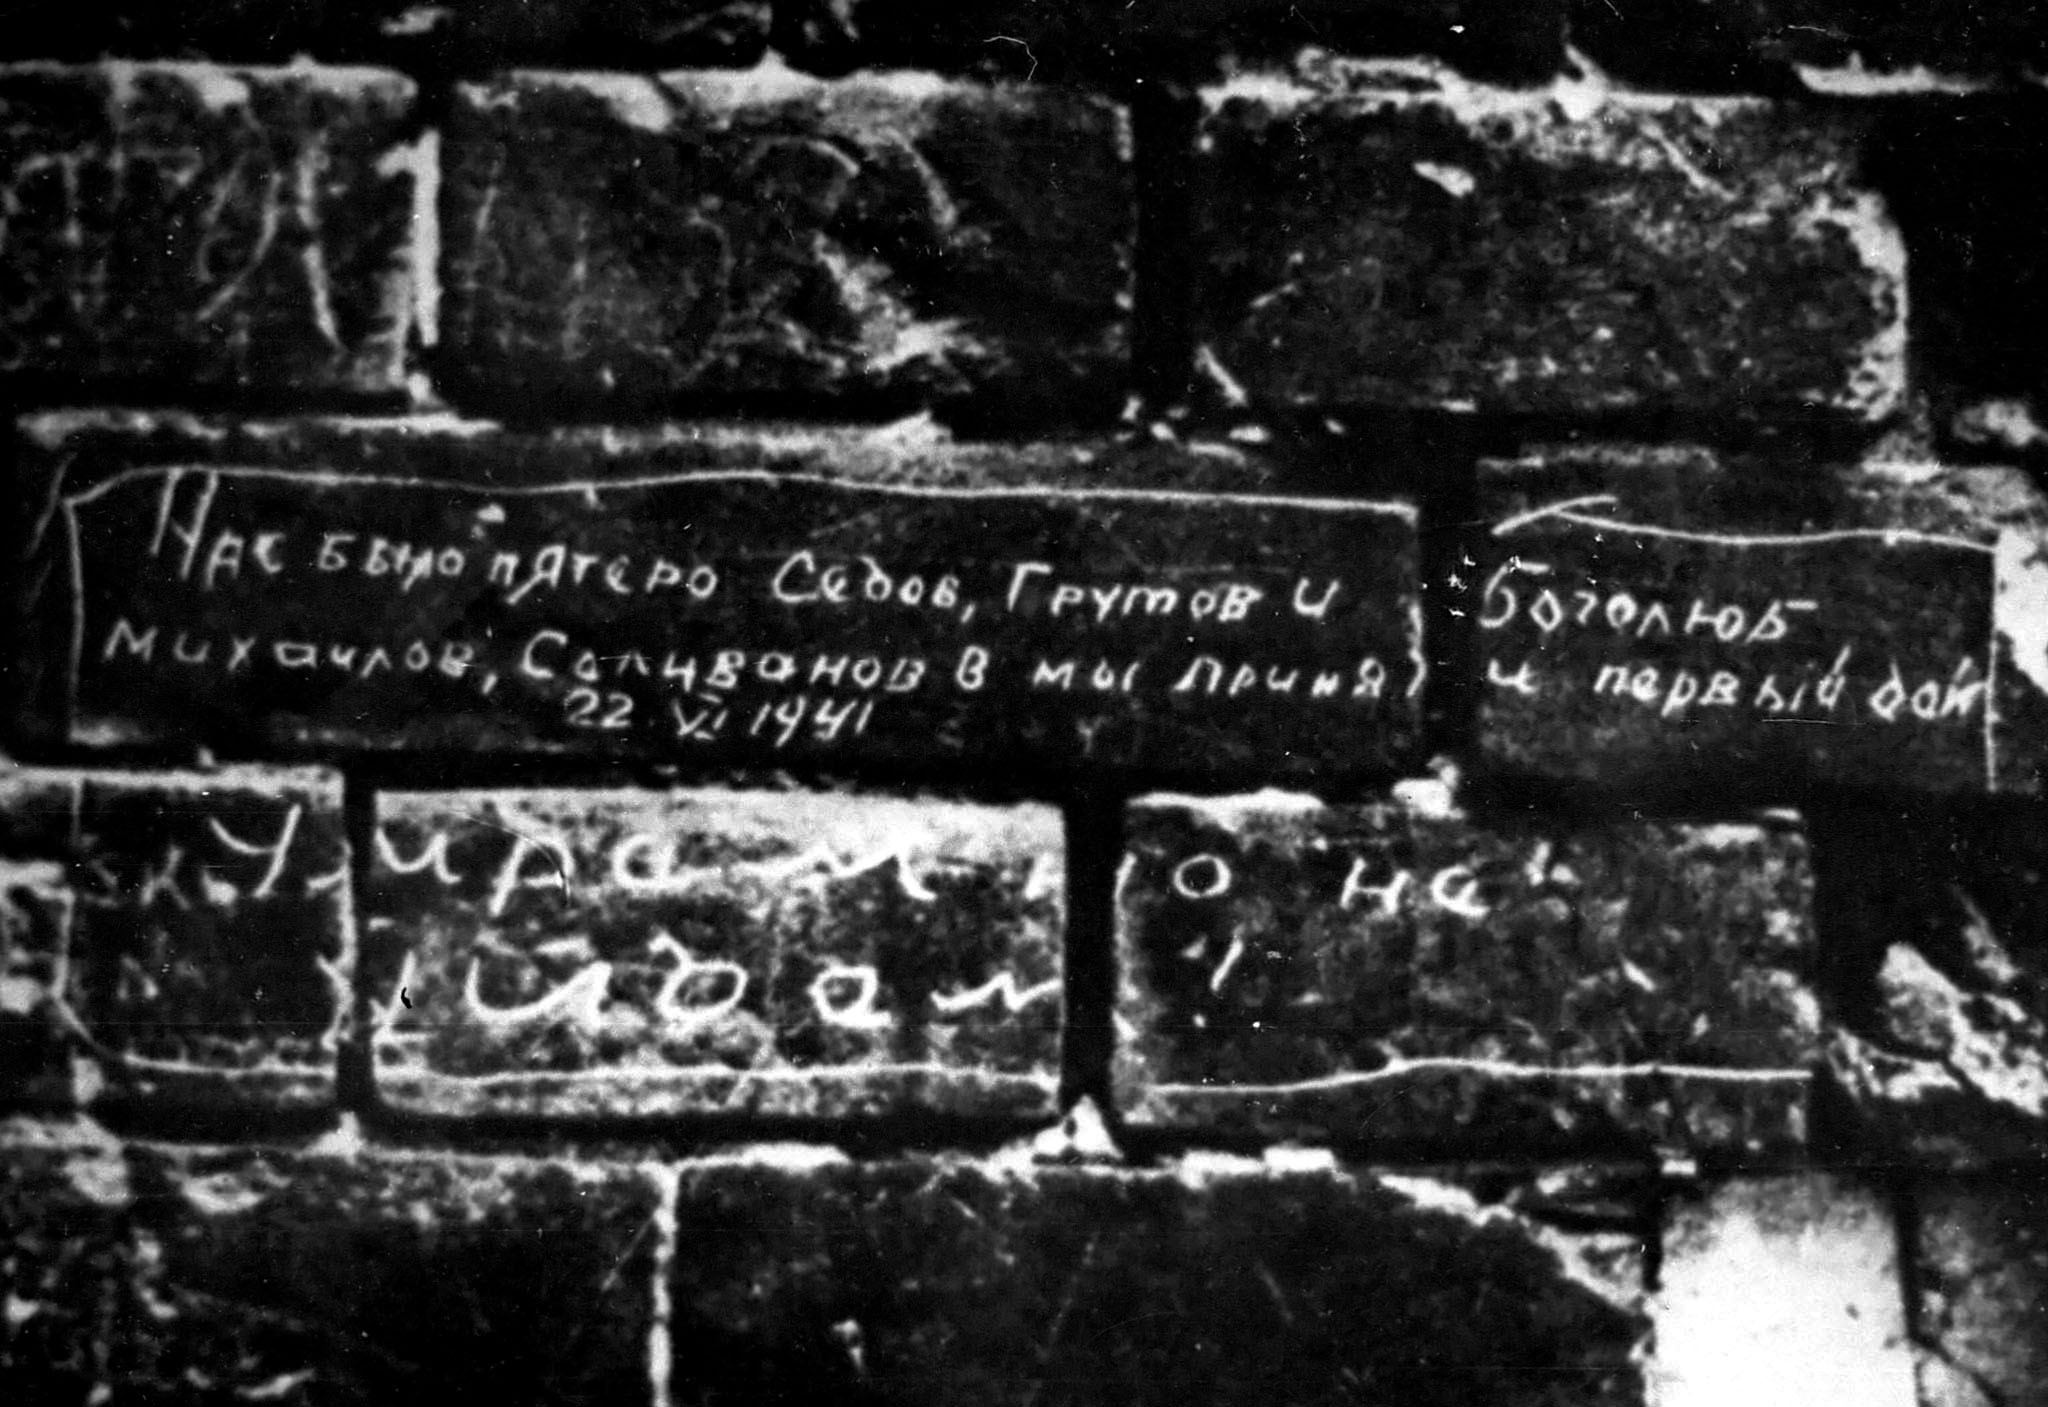 Нас было пятеро Седов, Грутов И Боголюб
михаилов, Селиванов В мы приня) и первый бой
22 VI 1941
Умрем но не
уйдем!